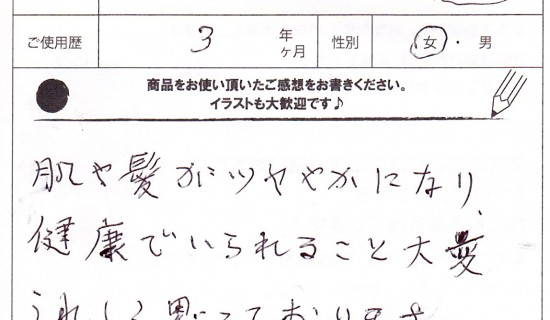 ご使用歴 3 年 ヶ月 性別 女・男
商品をお使い頂いたご感想をお書きください。
イラストも大歓迎です♪
肌や髪がツヤやかになり、
健康でいられること大変
うれしく思っております